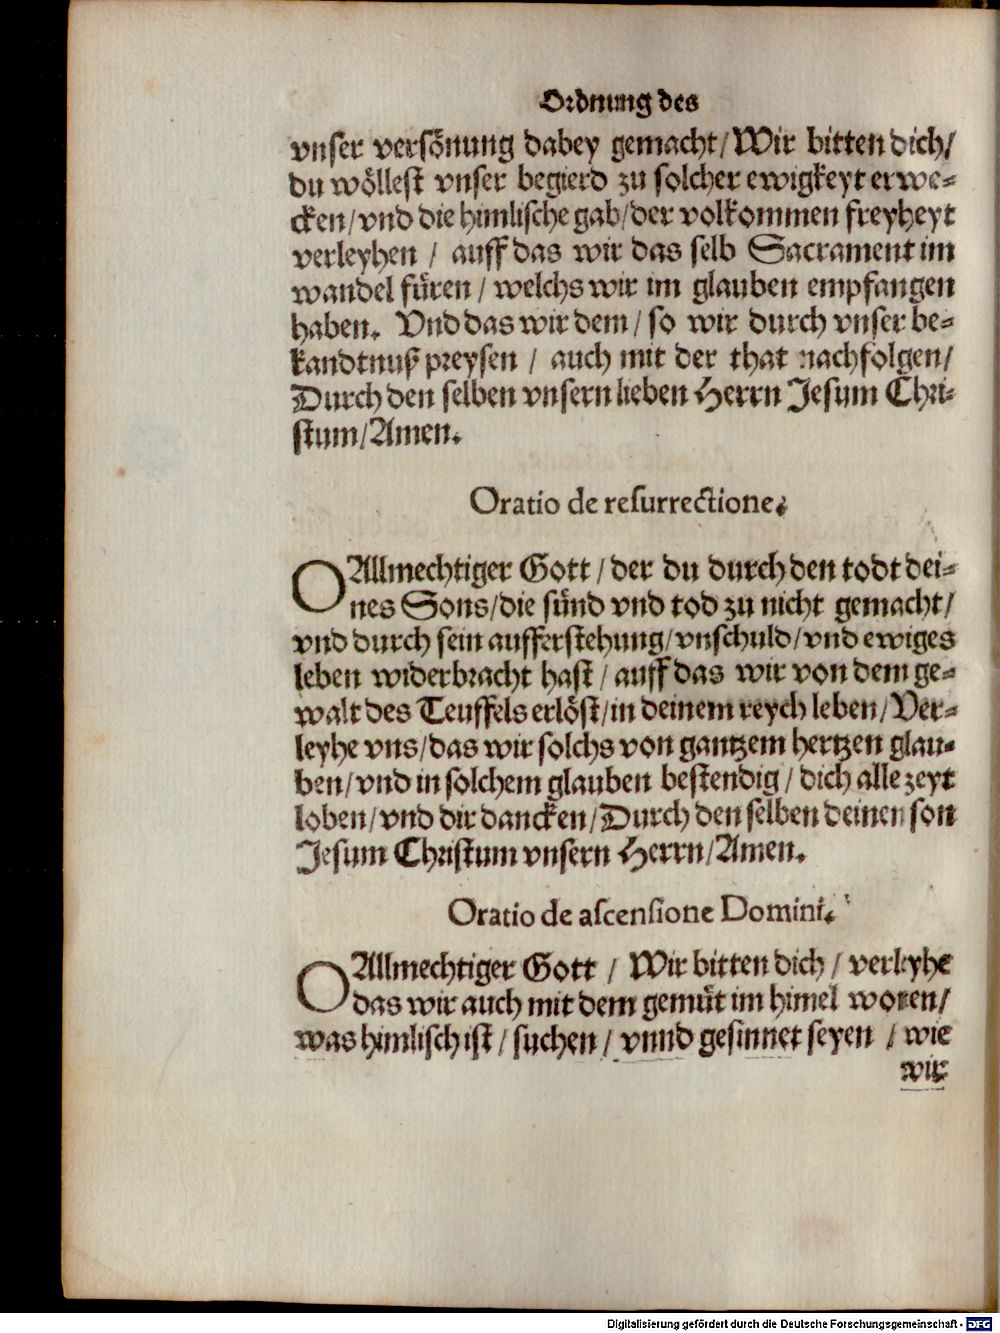 Ordnung des
vnser versönung dabey gemacht/Wir bitten dich/
du wöllest vnser begierd zu solcher ewigkeyt erwe-
cken/vnd die himlische gab/der volkommen freyheyt
verleyhen / auff das wir das selb Sacrament im
wandel füren / welchs wir im glauben empfangen
haben. Vnd das wir dem / so wir durch vnser be-
kandtnuß preysen / auch mit der that nachfolgen/
Durch den selben vnsern lieben Herrn Jesum Chri-
stum/Amen.
Oratio de resurrectione.
O Allmechtiger Gott / der du durch den todt dei-
nes Sons/die sünd vnd tod zu nicht gemacht/
vnd durch sein aufferstehung/vnschuld/vnd ewiges
leben widerbracht hast / auff das wir von dem ge-
walt des Teuffels erlöst/in deinem reych leben/Ver-
leyhe vns/das wir solchs von gantzem hertzen glau-
ben/vnd in solchem glauben bestendig / dich alle zeyt
loben/vnd dir dancken/Durch den selben deinen son
Jesum Christum vnsern Herrn/Amen.
Oratio de ascensione Domini.
O Allmechtiger Gott / Wir bitten dich / verleyhe
das wir auch mit dem gemüt im himel wonen/
was himlisch ist / suchen / vnnd gesinnet seyen / wie
wir
Digitalisierung gefördert durch die Deutsche Forschungsgemeinschaft - DFG